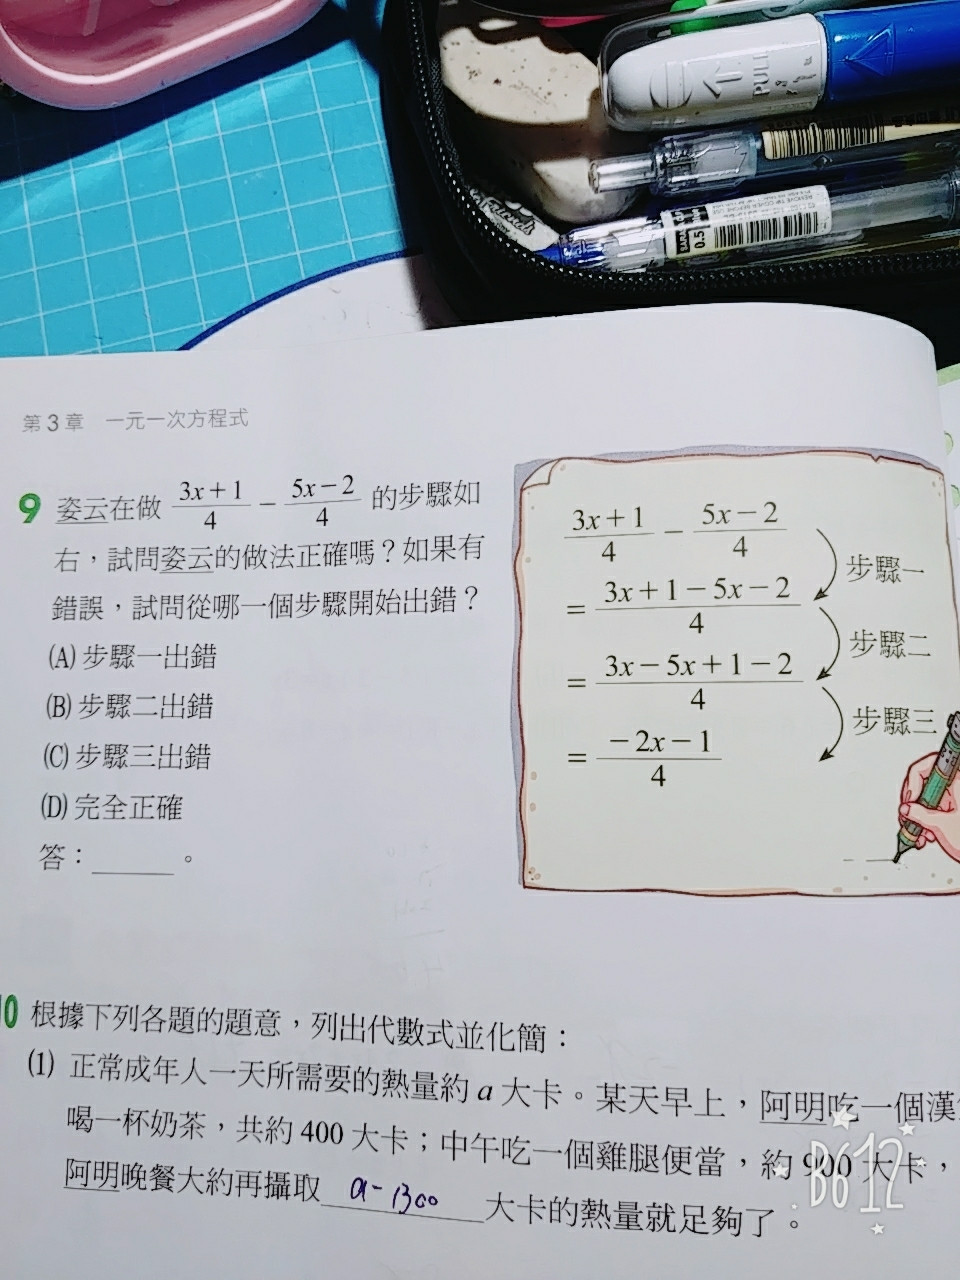 PULL
0.5
第3章 一元一次方程式
9 姿云在做 (3x+1)/4 − (5x−2)/4 的步驟如
右，試問姿云的做法正確嗎？如果有
錯誤，試問從哪一個步驟開始出錯？
(A) 步驟一出錯
(B) 步驟二出錯
(C) 步驟三出錯
(D) 完全正確
答：______。
(3x+1)/4 − (5x−2)/4
步驟一
= (3x+1−5x−2)/4
步驟二
= (3x−5x+1−2)/4
步驟三
= (−2x−1)/4
10 根據下列各題的題意，列出代數式並化簡：
(1) 正常成年人一天所需要的熱量約 a 大卡。某天早上，阿明吃一個漢
喝一杯奶茶，共約 400 大卡；中午吃一個雞腿便當，約 900 大卡，
阿明晚餐大約再攝取 a-1300 大卡的熱量就足夠了。
B612